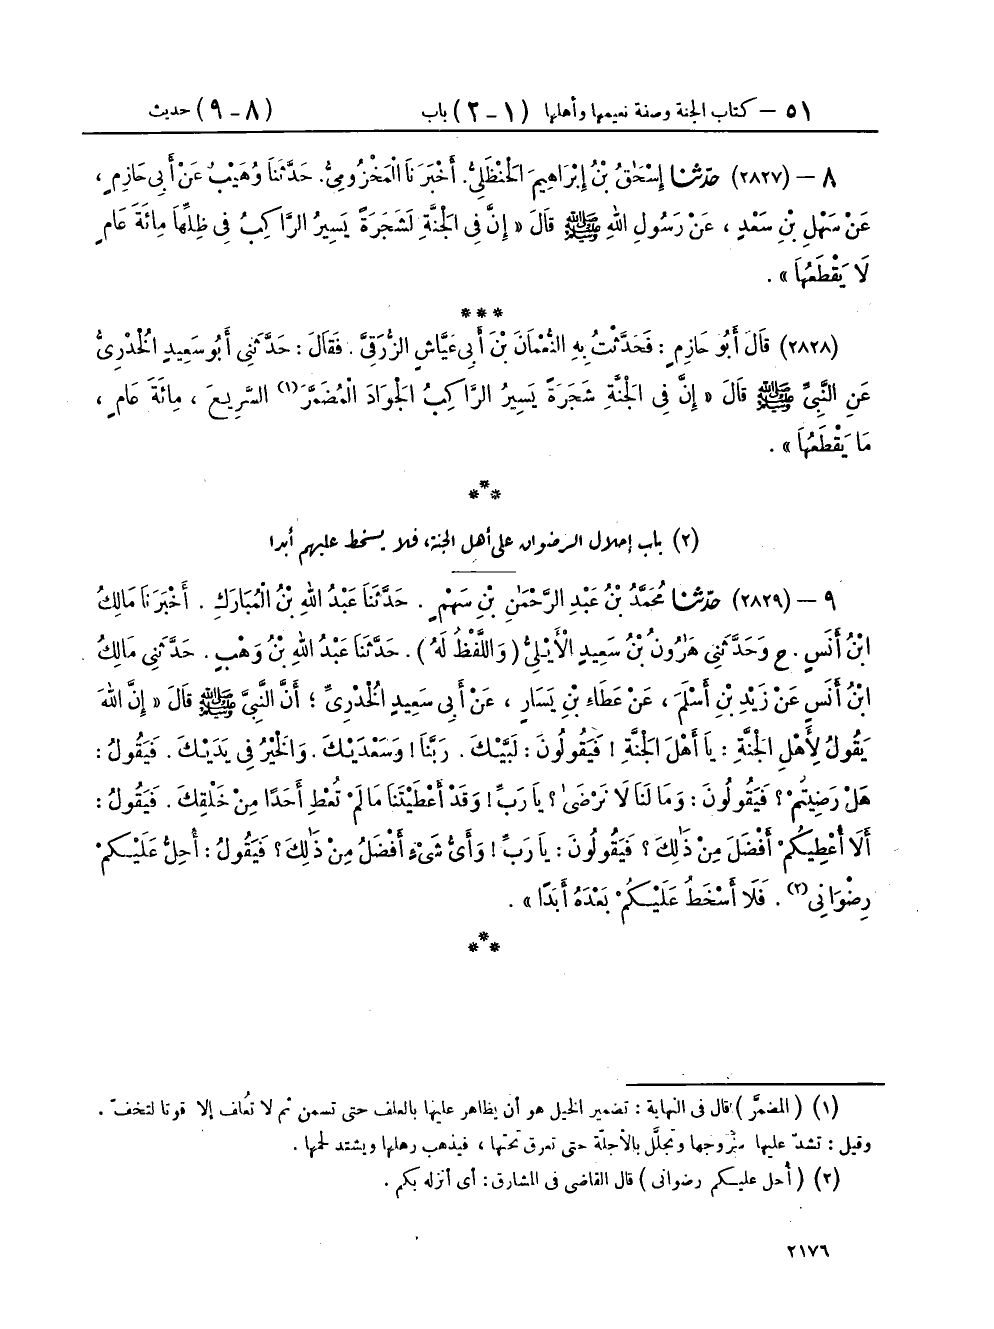 ٥١ – كتاب الجنة وصفة نعيمها وأهلها (١ – ٢) باب (٨ – ٩) حديث
٨ – (٢٨٢٧) حَدَّثَنَا إِسْحٰقُ بْنُ إِبْرَاهِيمَ الْحَنْظَلِيُّ. أَخْبَرَنَا الْمَخْزُومِيُّ. حَدَّثَنَا وُهَيْبٌ عَنْ أَبِي حَازِمٍ ،
عَنْ سَهْلِ بْنِ سَعْدٍ ، عَنْ رَسُولِ اللهِ ﷺ قَالَ « إِنَّ فِي الْجَنَّةِ لَشَجَرَةً يَسِيرُ الرَّاكِبُ فِي ظِلِّهَا مِائَةَ عَامٍ
لَا يَقْطَعُهَا » .
***
(٢٨٢٨) قَالَ أَبُو حَازِمٍ : فَحَدَّثْتُ بِهِ النُّعْمَانَ بْنَ أَبِي عَيَّاشٍ الزُّرَقِيَّ . فَقَالَ : حَدَّثَنِي أَبُو سَعِيدٍ الْخُدْرِيُّ
عَنِ النَّبِيِّ ﷺ قَالَ « إِنَّ فِي الْجَنَّةِ شَجَرَةً يَسِيرُ الرَّاكِبُ الْجَوَادَ الْمُضَمَّرَ(١) السَّرِيعَ ، مِائَةَ عَامٍ ،
مَا يَقْطَعُهَا » .
***
(٢) باب إحلال الرضوان على أهل الجنة، فلا يسخط عليهم أبدا
٩ – (٢٨٢٩) حَدَّثَنَا مُحَمَّدُ بْنُ عَبْدِ الرَّحْمٰنِ بْنِ سَهْمٍ . حَدَّثَنَا عَبْدُ اللهِ بْنُ الْمُبَارَكِ . أَخْبَرَنَا مَالِكُ
ابْنُ أَنَسٍ . ح وَحَدَّثَنِي هٰرُونُ بْنُ سَعِيدٍ الْأَيْلِيُّ (وَاللَّفْظُ لَهُ) . حَدَّثَنَا عَبْدُ اللهِ بْنُ وَهْبٍ . حَدَّثَنِي مَالِكُ
ابْنُ أَنَسٍ عَنْ زَيْدِ بْنِ أَسْلَمَ ، عَنْ عَطَاءِ بْنِ يَسَارٍ ، عَنْ أَبِي سَعِيدٍ الْخُدْرِيِّ ؛ أَنَّ النَّبِيَّ ﷺ قَالَ « إِنَّ اللهَ
يَقُولُ لِأَهْلِ الْجَنَّةِ : يَا أَهْلَ الْجَنَّةِ ! فَيَقُولُونَ : لَبَّيْكَ . رَبَّنَا ! وَسَعْدَيْكَ . وَالْخَيْرُ فِي يَدَيْكَ . فَيَقُولُ :
هَلْ رَضِيتُمْ ؟ فَيَقُولُونَ : وَمَا لَنَا لَا نَرْضَىٰ ؟ يَا رَبِّ ! وَقَدْ أَعْطَيْتَنَا مَا لَمْ تُعْطِ أَحَدًا مِنْ خَلْقِكَ . فَيَقُولُ :
أَلَا أُعْطِيكُمْ أَفْضَلَ مِنْ ذٰلِكَ ؟ فَيَقُولُونَ : يَا رَبِّ ! وَأَيُّ شَيْءٍ أَفْضَلُ مِنْ ذٰلِكَ ؟ فَيَقُولُ : أُحِلُّ عَلَيْكُمْ
رِضْوَانِي(٢) . فَلَا أَسْخَطُ عَلَيْكُمْ بَعْدَهُ أَبَدًا » .
***
(١) (المضمَّر) قال فى النهاية : تضمير الخيل هو أن يظاهر عليها بالعلف حتى تسمن ثم لا تُعلف إلا قوتا لتخفّ .
وقيل : تشدّ عليها سروجها وتجلَّل بالأجلَّة حتى تعرق تحتها ، فيذهب رهلها ويشتد لحمها .
(٢) (أُحل عليكم رضوانى) قال القاضى فى المشارق : أى أنزله بكم .
٢١٧٦